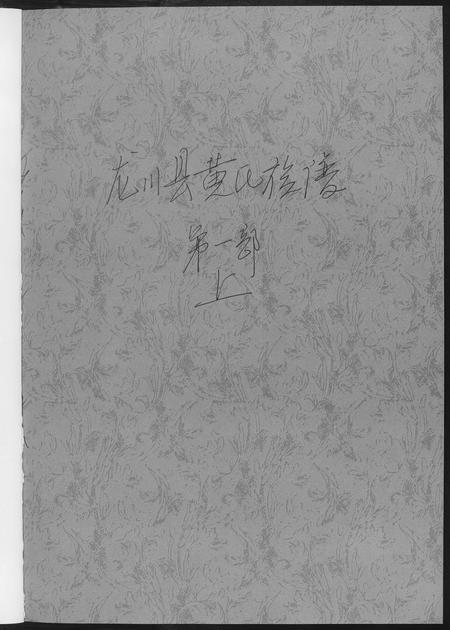 龙川县黄氏族谱
第一部
上